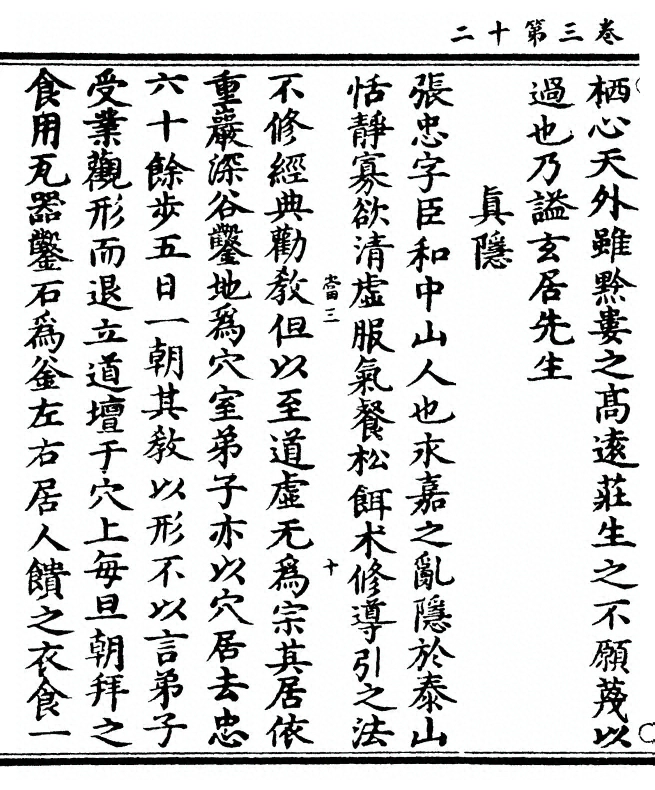 卷三第十二
栖心天外雖黔婁之髙逺莊生之不願蔑以
過也乃謚玄居先生
真隱
張忠字臣和中山人也永嘉之亂隱於泰山
恬靜寡欲清虛服氣餐松餌术修導引之法
當三 十
不修經典勸教但以至道虛无爲宗其居依
重巖深谷鑿地爲穴室弟子亦以穴居去忠
六十餘步五日一朝其教以形不以言弟子
受業觀形而退立道壇于穴上每旦朝拜之
食用瓦器鑿石爲釡左右居人饋之衣食一